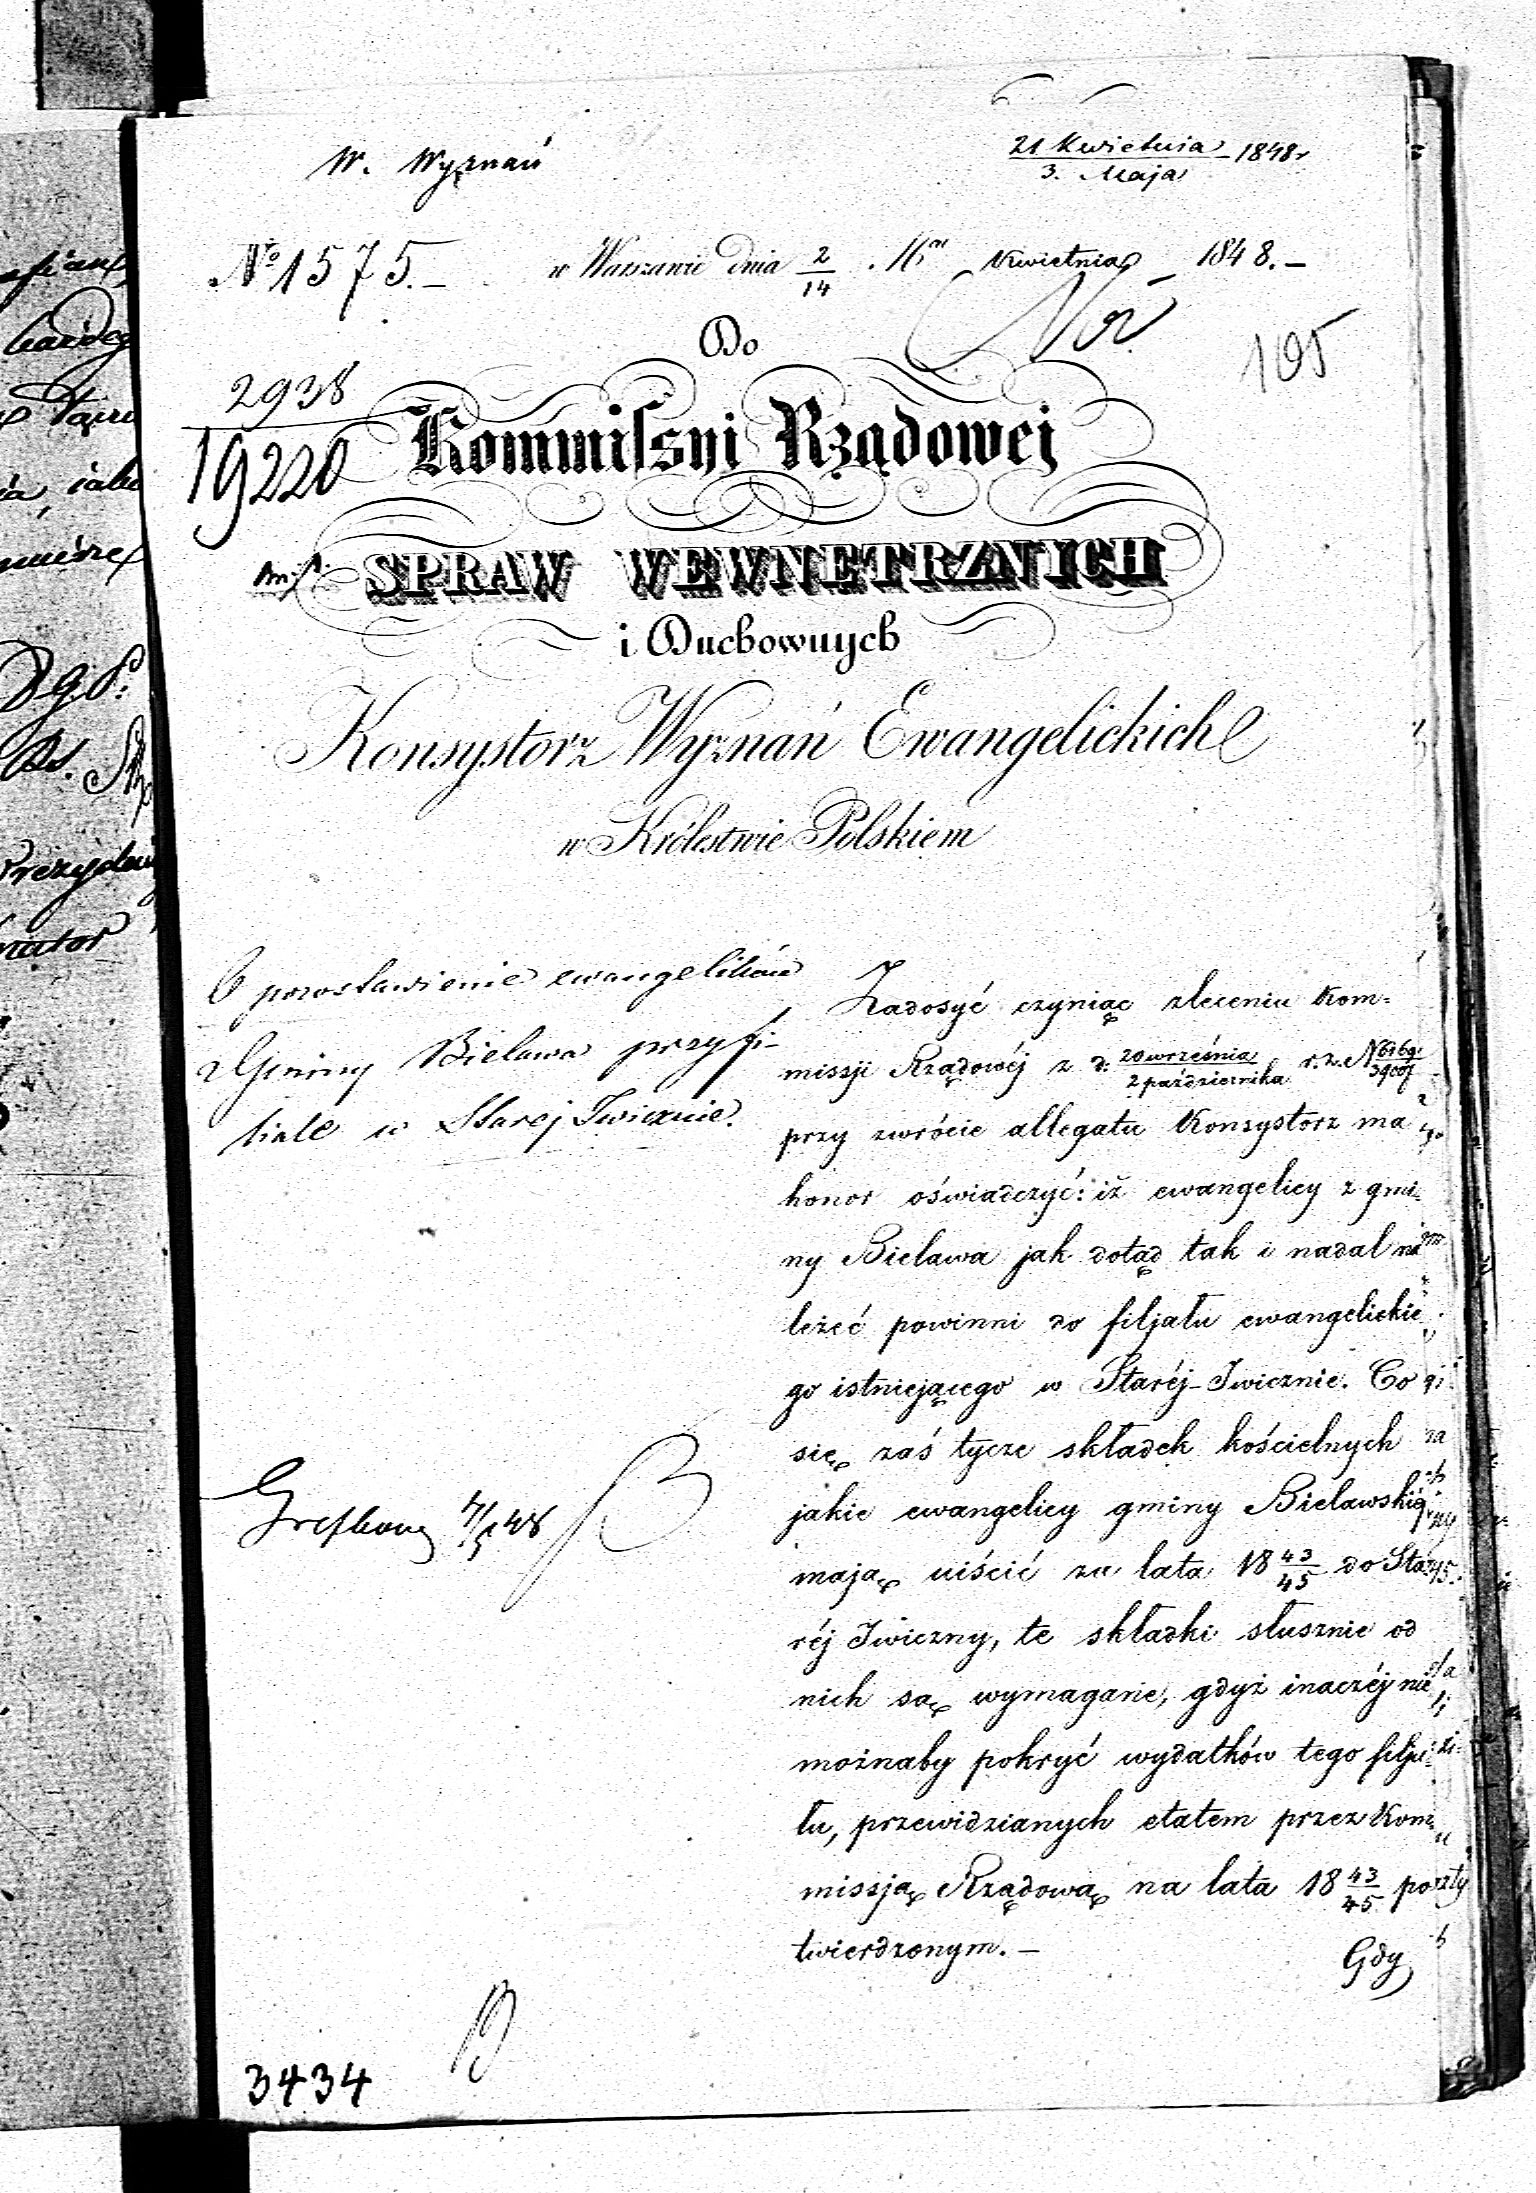 W. Wyznań
21 Kwietnia / 3. Maja 1848r
No 1575.—
w Warszawie dnia 2/14 Mca Kwietnia 1848.—
Do
195
2938
19220
Kommissyi Rządowej
SPRAW WEWNĘTRZNYCH
i Duchownych
Konsystorz Wyznań Ewangelickich
w Królestwie Polskiem
O pozostawienie ewangelików
z Gminy Bielawa przy fi-
liale w Starej Iwicznie.
Zadosyć czyniąc zleceniu Kom-
missji Rządowéj z d: 20 września / 2 października r. z. N
przy zwrócie allegatu Konsystorz ma
honor oświadczyć: iż ewangelicy z gmi-
ny Bielawa jak dotąd tak i nadal na
leżeć powinni do filjału ewangelickie
go istniejącego w Staréj-Iwicznie. Co
się zaś tycze składek kościelnych
jakie ewangelicy gminy Bielawskié
mają uiścić za lata 18 43/45 do Sta
réj Iwiczny, te składki słusznie od
nich są wymagane, gdyż inaczéj nie
możnaby pokryć wydatków tego filja-
łu, przewidzianych etatem przez Kom-
missją Rządową na lata 18 43/45 po
twierdzonym.—
Gdy
3434